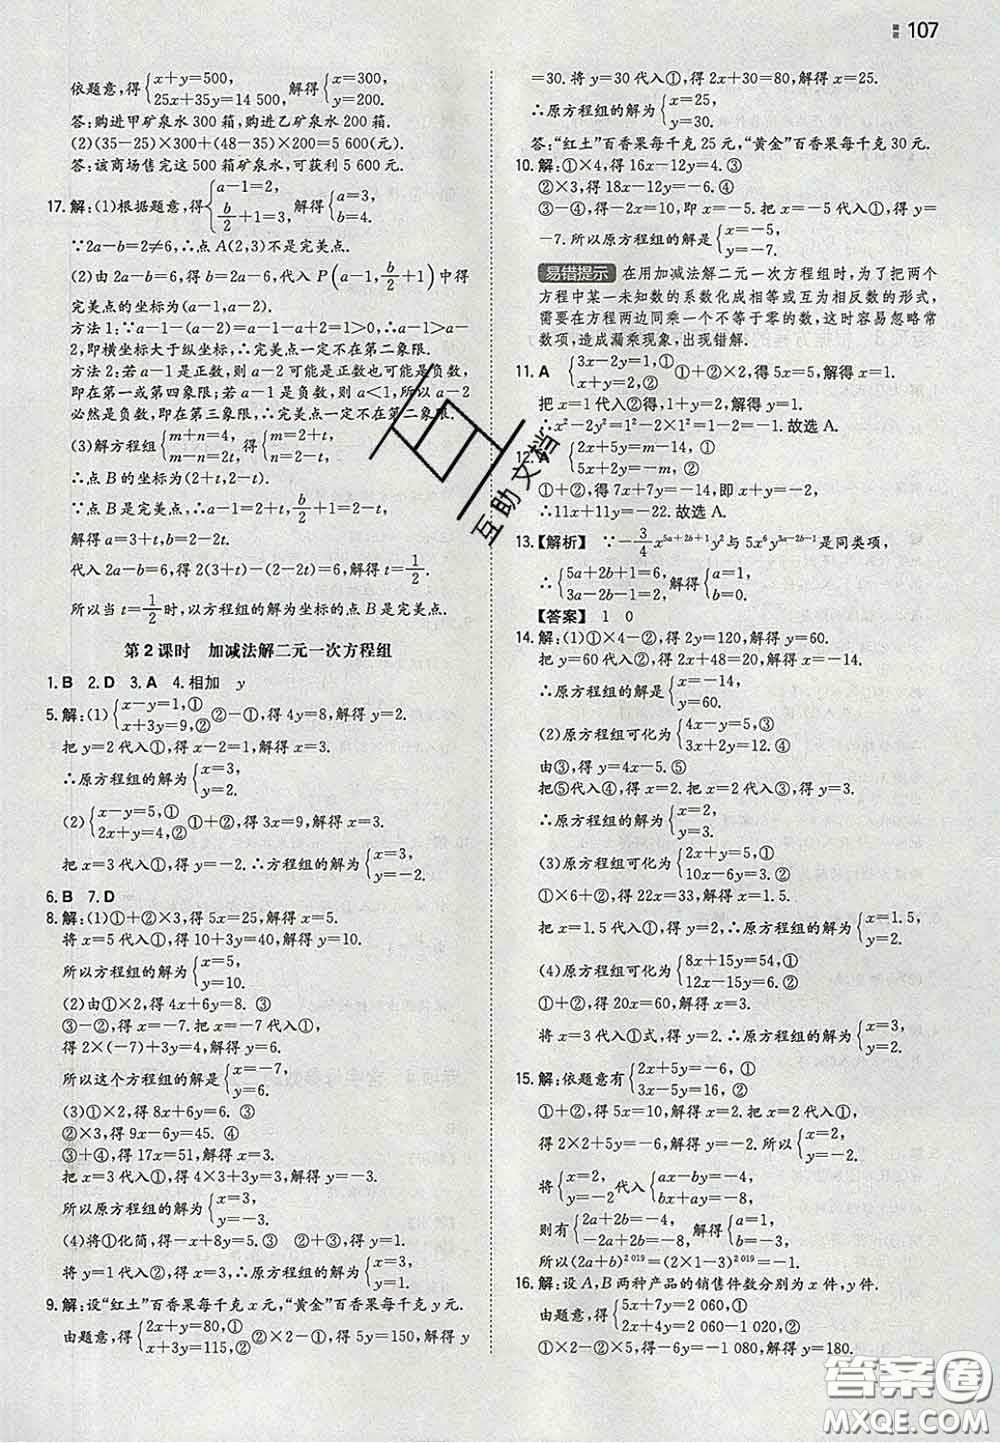 107
依题意,得{x+y=500, 25x+35y=14 500, 解得{x=300, y=200.
答:购进甲矿泉水 300 箱,购进乙矿泉水 200 箱.
(2)(35-25)×300+(48-35)×200=5 600(元).
答:该商场售完这 500 箱矿泉水,可获利 5 600 元.
17.解:(1)根据题意,得{a-1=2, b/2+1=3, 解得{a=3, b=4.
∵2a-b=2≠6,∴点 A(2,3)不是完美点.
(2)由 2a-b=6,得 b=2a-6,代入 P(a-1, b/2+1)中得
完美点的坐标为(a-1,a-2).
方法 1:∵a-1-(a-2)=a-1-a+2=1>0,∴a-1>a-
2,即横坐标大于纵坐标,∴完美点一定不在第二象限.
方法 2:若 a-1 是正数,则 a-2 可能是正数也可能是负数,
即在第一或第四象限;若 a-1 是负数,则 a<1,所以 a-2
必然是负数,∴完美点一定不在第二象限.
(3)解方程组{m+n=4, m-n=2t, 得{m=2+t, n=2-t.
∴点 B 的坐标为(2+t,2-t).
∵点 B 是完美点,∴a-1=2+t, b/2+1=2-t,
解得 a=3+t,b=2-2t.
代入 2a-b=6,得 2(3+t)-(2-2t)=6,解得 t=1/2.
所以当 t=1/2时,以方程组的解为坐标的点 B 是完美点.
第 2 课时 加减法解二元一次方程组
1.B 2.D 3.A 4.相加 y
5.解:(1){x-y=1,① x+3y=9,② ②-①,得 4y=8,解得 y=2.
把 y=2 代入①,得 x-2=1,解得 x=3.
∴原方程组的解为{x=3, y=2.
(2){x-y=5,① 2x+y=4,② ①+②,得 3x=9,解得 x=3.
把 x=3 代入①,得 y=-2.∴方程组的解为{x=3, y=-2.
6.B 7.D
8.解:(1)①+②×3,得 5x=25,解得 x=5.
将 x=5 代入①,得 10+3y=40,解得 y=10.
所以方程组的解为{x=5, y=10.
(2)由①×2,得 4x+6y=8. ③
③-②,得 x=-7.把 x=-7 代入①,
得 2×(-7)+3y=4,解得 y=6.
所以这个方程组的解是{x=-7, y=6.
(3)①×2,得 8x+6y=6. ③
②×3,得 9x-6y=45. ④
③+④,得 17x=51,解得 x=3.
把 x=3 代入①,得 4×3+3y=3,解得 y=-3.
所以原方程组的解为{x=3, y=-3.
(4)将①化简,得-x+8y=7. ③ ②+③,得 y=1.
将 y=1 代入②,得 x=1.∴原方程组的解为{x=1, y=1.
9.解:设“红土”百香果每千克 x 元,“黄金”百香果每千克 y 元.
由题意,得{2x+y=80,① x+3y=115,② ②×2-①,得 5y=150,解得 y
=30.将 y=30 代入①,得 2x+30=80,解得 x=25.
∴原方程组的解为{x=25, y=30.
答:“红土”百香果每千克 25 元,“黄金”百香果每千克 30 元.
10.解:①×4,得 16x-12y=4. ③
②×3,得 18x-12y=-6. ④
③-④,得-2x=10,即 x=-5. 把 x=-5 代入①,得 y=
-7. 所以原方程组的解为{x=-5, y=-7.
易错提示 在用加减法解二元一次方程组时,为了把两个
方程中某一未知数的系数化成相等或互为相反数的形式,
需要在方程两边同乘一个不等于零的数,这时容易忽略常
数项,造成漏乘现象,出现错解.
11.A {3x-2y=1,① x+y=2,② ①+②×2,得 5x=5,解得 x=1.
把 x=1 代入②得,1+y=2,解得 y=1.
∴x²-2y=1²-2×1=1-2=-1. 故选 A.
{2x+5y=m-14,① 5x+2y=-m,②
①+②,得 7x+7y=-14,即 x+y=-2,
∴11x+11y=-22. 故选 A.
13.【解析】 ∵-3/4x^(5a+2b+1)y²与 5x⁶y^(3a-2b-1)是同类项,
∴{5a+2b+1=6, 3a-2b-1=2, 解得{a=1, b=0.
【答案】 1 0
14.解:(1)①×4-②,得 2y=120,解得 y=60.
把 y=60 代入①,得 2x+48=20,解得 x=-14.
∴原方程组的解是{x=-14, y=60.
(2)原方程组可化为{4x-y=5,③ 3x+2y=12.④
由③,得 y=4x-5. ⑤
把⑤代入④,解得 x=2. 把 x=2 代入③,得 y=3.
∴原方程组的解为{x=2, y=3.
(3)原方程组可化为{2x+y=5,① 10x-6y=3.②
①×6+②,得 22x=33,解得 x=1.5.
把 x=1.5 代入①,得 y=2,∴原方程组的解为{x=1.5, y=2.
(4)原方程组可化为{8x+15y=54,① 12x-15y=6.②
①+②,得 20x=60,解得 x=3.
将 x=3 代入①式,得 y=2.∴原方程组的解为{x=3, y=2.
15.解:依题意有{2x+5y=-6,① 3x-5y=16,②
①+②,得 5x=10,解得 x=2. 把 x=2 代入①,
得 2×2+5y=-6,解得 y=-2.所以{x=2, y=-2.
将{x=2, y=-2代入{ax-by=-4, bx+ay=-8,
则有{2a+2b=-4, -2a+2b=-8, 解得{a=1, b=-3.
所以(2a+b)^2 019=(2-3)^2 019=(-1)^2 019=-1.
16.解:设 A,B 两种产品的销售件数分别为 x 件,y 件.
由题意,得{5x+7y=2 060,① 2x+4y=2 060-1 020,②
①×2-②×5,得-6y=-1 080,解得 y=180.
互助文档
答案圈
MXQE.COM